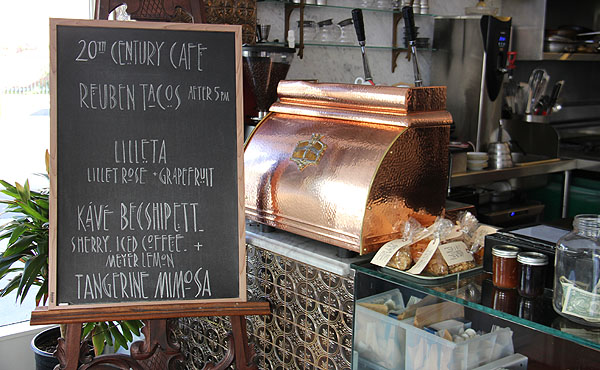 20TH CENTURY CAFE
REUBEN TACOS AFTER 5PM
LILLETA
LILLET ROSE + GRAPEFRUIT
KÁVÉ BECSHIPETT
SHERRY, ICED COFFEE, +
MEYER LEMON
TANGERINE MIMOSA